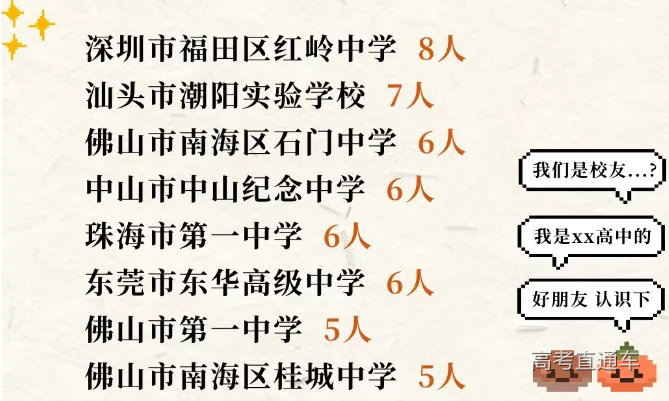 深圳市福田区红岭中学 8人
汕头市潮阳实验学校 7人
佛山市南海区石门中学 6人
中山市中山纪念中学 6人
珠海市第一中学 6人
东莞市东华高级中学 6人
佛山市第一中学 5人
佛山市南海区桂城中学 5人
我们是校友...?
我是xx高中的
好朋友 认识下
高考直通车